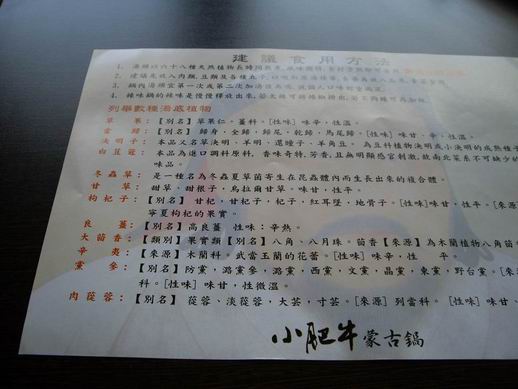 建議食用方法
1. 湯頭以六十八種天然植物長時間熬
2. 建議先放入肉類、豆類及各種丸子
3. 鍋內湯頭宜第一次或第二次加湯
4. 辣味鍋的辣味是慢慢釋放出來
列舉數種湯底植物
草果：【別名】草果仁、薑科。[性味] 味辛、性溫。
當歸：【別名】歸身、全歸、歸尾、乾歸、馬尾歸。[性味] 味甘、辛、性溫。
決明子：本品又名草決明、羊明、還瞳子、羊角豆。為豆科植物決明或小決明的成熟種子
白荳蔻：本品為進口調料原料，香味奇特，芳香，且無明顯
味品。
冬蟲草：是一種名為冬蟲夏草菌寄生在昆蟲體內而生長出來的複合體。
甘草：甜草、甜根子、烏拉爾甘草。味甘，性平。
枸杞子：【別名】甘杞、甘杞子、杞子、紅耳墜、地骨子。[性味]味甘、性平。
寧夏枸杞的果實。
良薑：【別名】高良薑 性味：辛熱。
大茴香：【類別】果實類【別名】八角、八月珠、茴香【來源】為木蘭植物八角茴
辛夷：【來源】木蘭科、武當玉蘭的花蕾。[性味] 味辛、性 平。
黨參：【別名】防黨，潞黨參，潞黨，西黨，文黨，晶黨，東黨，野台黨。[來
科。[性味] 味甘，性微溫。
肉蓯蓉：【別名】蓯蓉、淡蓯蓉，大芸，寸芸。[來源] 列當科。[性味] 味甘、
小肥牛蒙古鍋